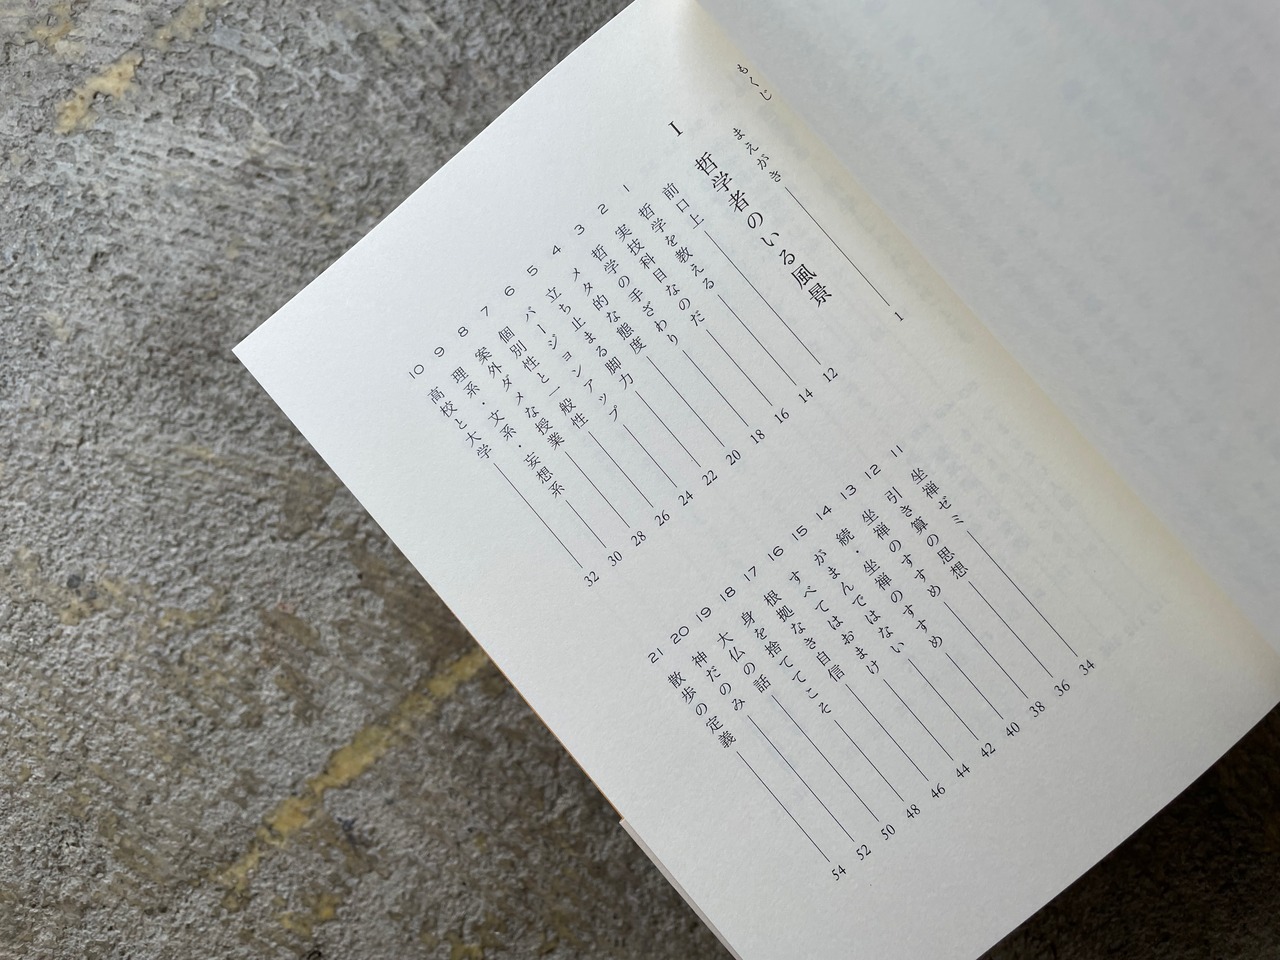 もくじ
まえがき 1
I 哲学者のいる風景
前口上 12
1 哲学を教える 14
2 実技科目なのだ 16
3 哲学の手ざわり 18
4 メタ的な態度 20
5 立ち止まる脚力 22
6 バージョンアップ 24
7 個別性と一般性 26
8 案外ダメな授業 28
9 理系・文系・妄想系 30
10 高校と大学 32
11 坐禅ゼミ 34
12 引き算の思想 36
13 坐禅のすすめ 38
14 続・坐禅のすすめ 40
15 がまんではない 42
16 すべてはおまけ 44
17 根拠なき自信 46
18 身を捨ててこそ 48
19 大仏の話 50
20 神だのみ 52
21 散歩の定義 54